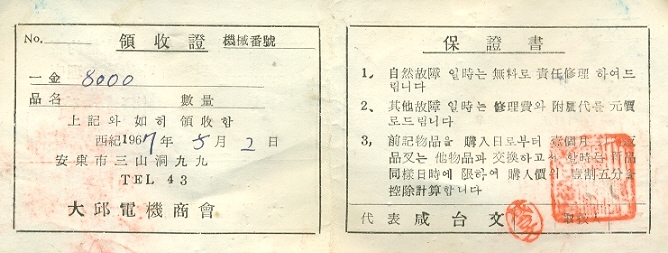 No.
領收證 機械番號
一金 8000
品名 數量
上記와 如히 領收함
西紀1967年 5月 2日
安東市三山洞九九
TEL 43
大邱電機商會
保證書
1, 自然故障 일때는 無料로 責任修理 하여드
립니다
2, 其他故障 일때는 修理費와 附屬代를 元價
로드립니다
3, 前記物品을 購入日로부터 壹個月
品又는 他物品과 交換하고저 할時는 品
同樣日時에 限하여 購入價의 壹割五分을
控除計算합니다
代表 咸台文